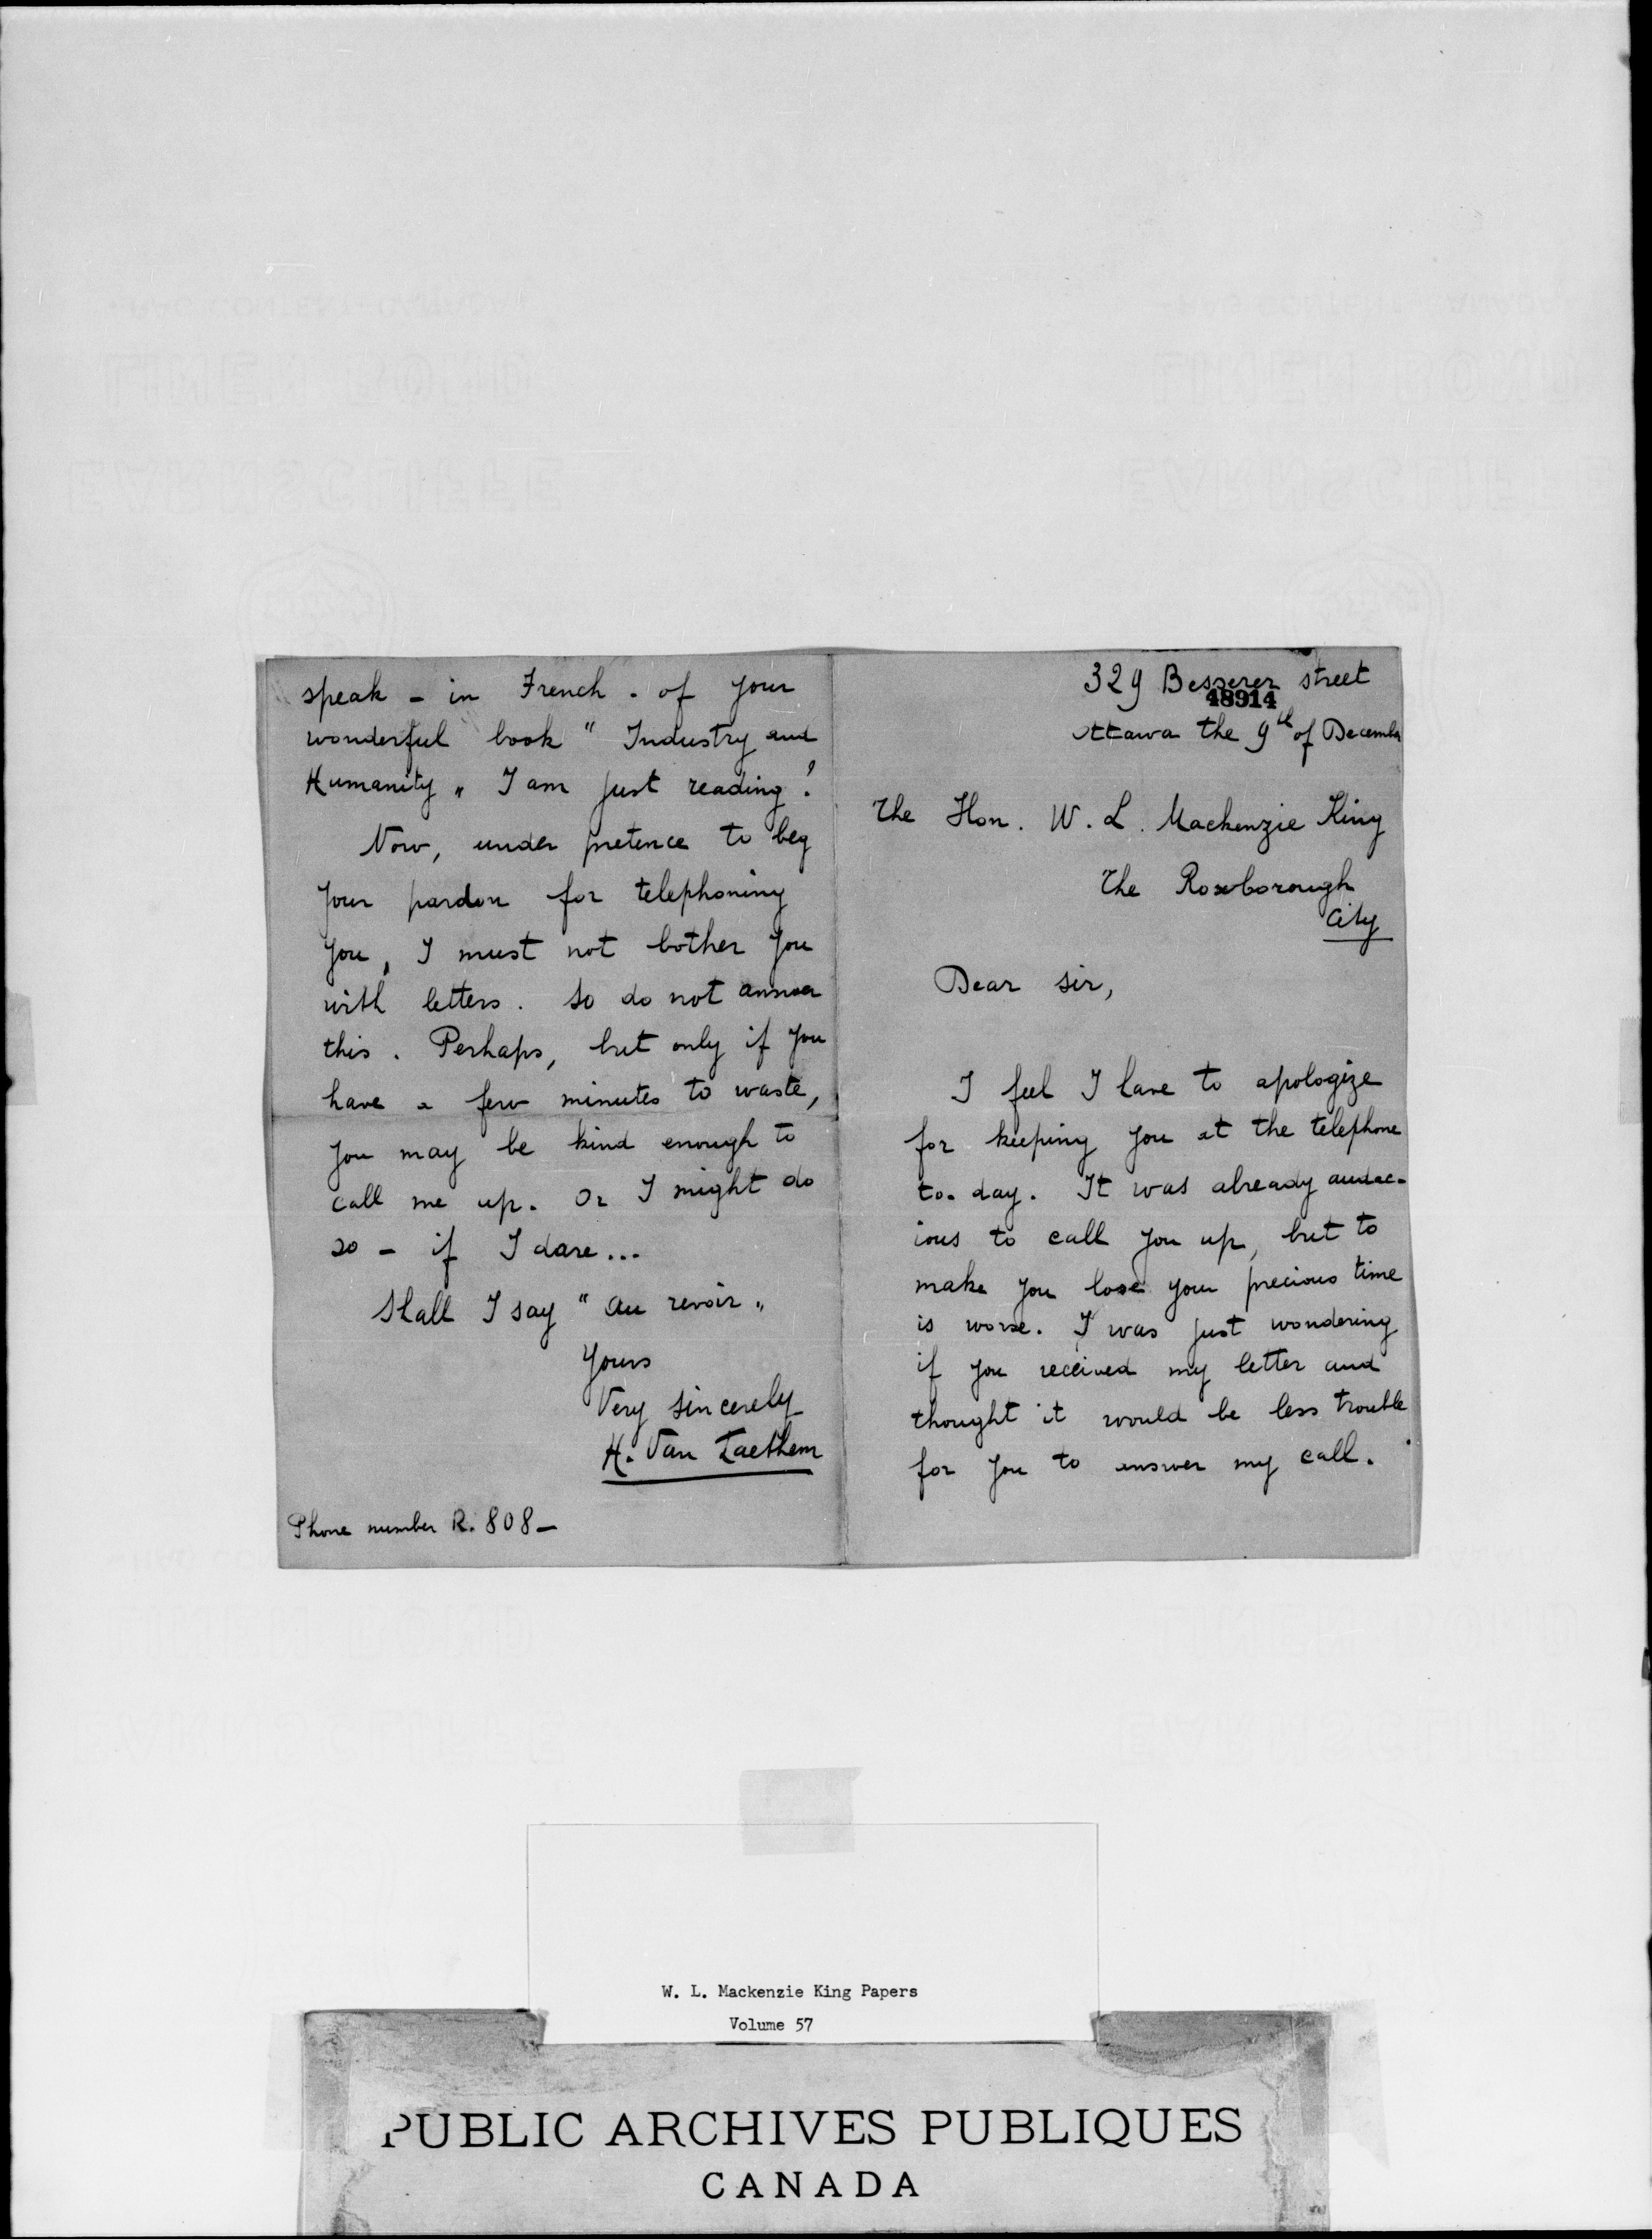 329 Besserer street
48914
Ottawa the 9th of December
The Hon. W. L. Mackenzie King
The Roxborough
City
Dear sir,
I feel I have to apologize
for keeping you at the telephone
to-day. It was already audac-
ious to call you up, but to
make you lose your precious time
is worse. I was just wondering
if you received my letter and
thought it would be less trouble
for you to answer my call.
speak - in French - of your
wonderful book " Industry and
Humanity " I am just reading!
Now, under pretence to beg
your pardon for telephoning
you, I must not bother you
with letters. So do not answer
this. Perhaps, but only if you
have a few minutes to waste,
you may be kind enough to
call me up. Or I might do
so - if I dare...
Shall I say " au revoir "
Yours
Very sincerely
H. Van Laethem
Phone number R. 808 -
W. L. Mackenzie King Papers
Volume 57
PUBLIC ARCHIVES PUBLIQUES
CANADA